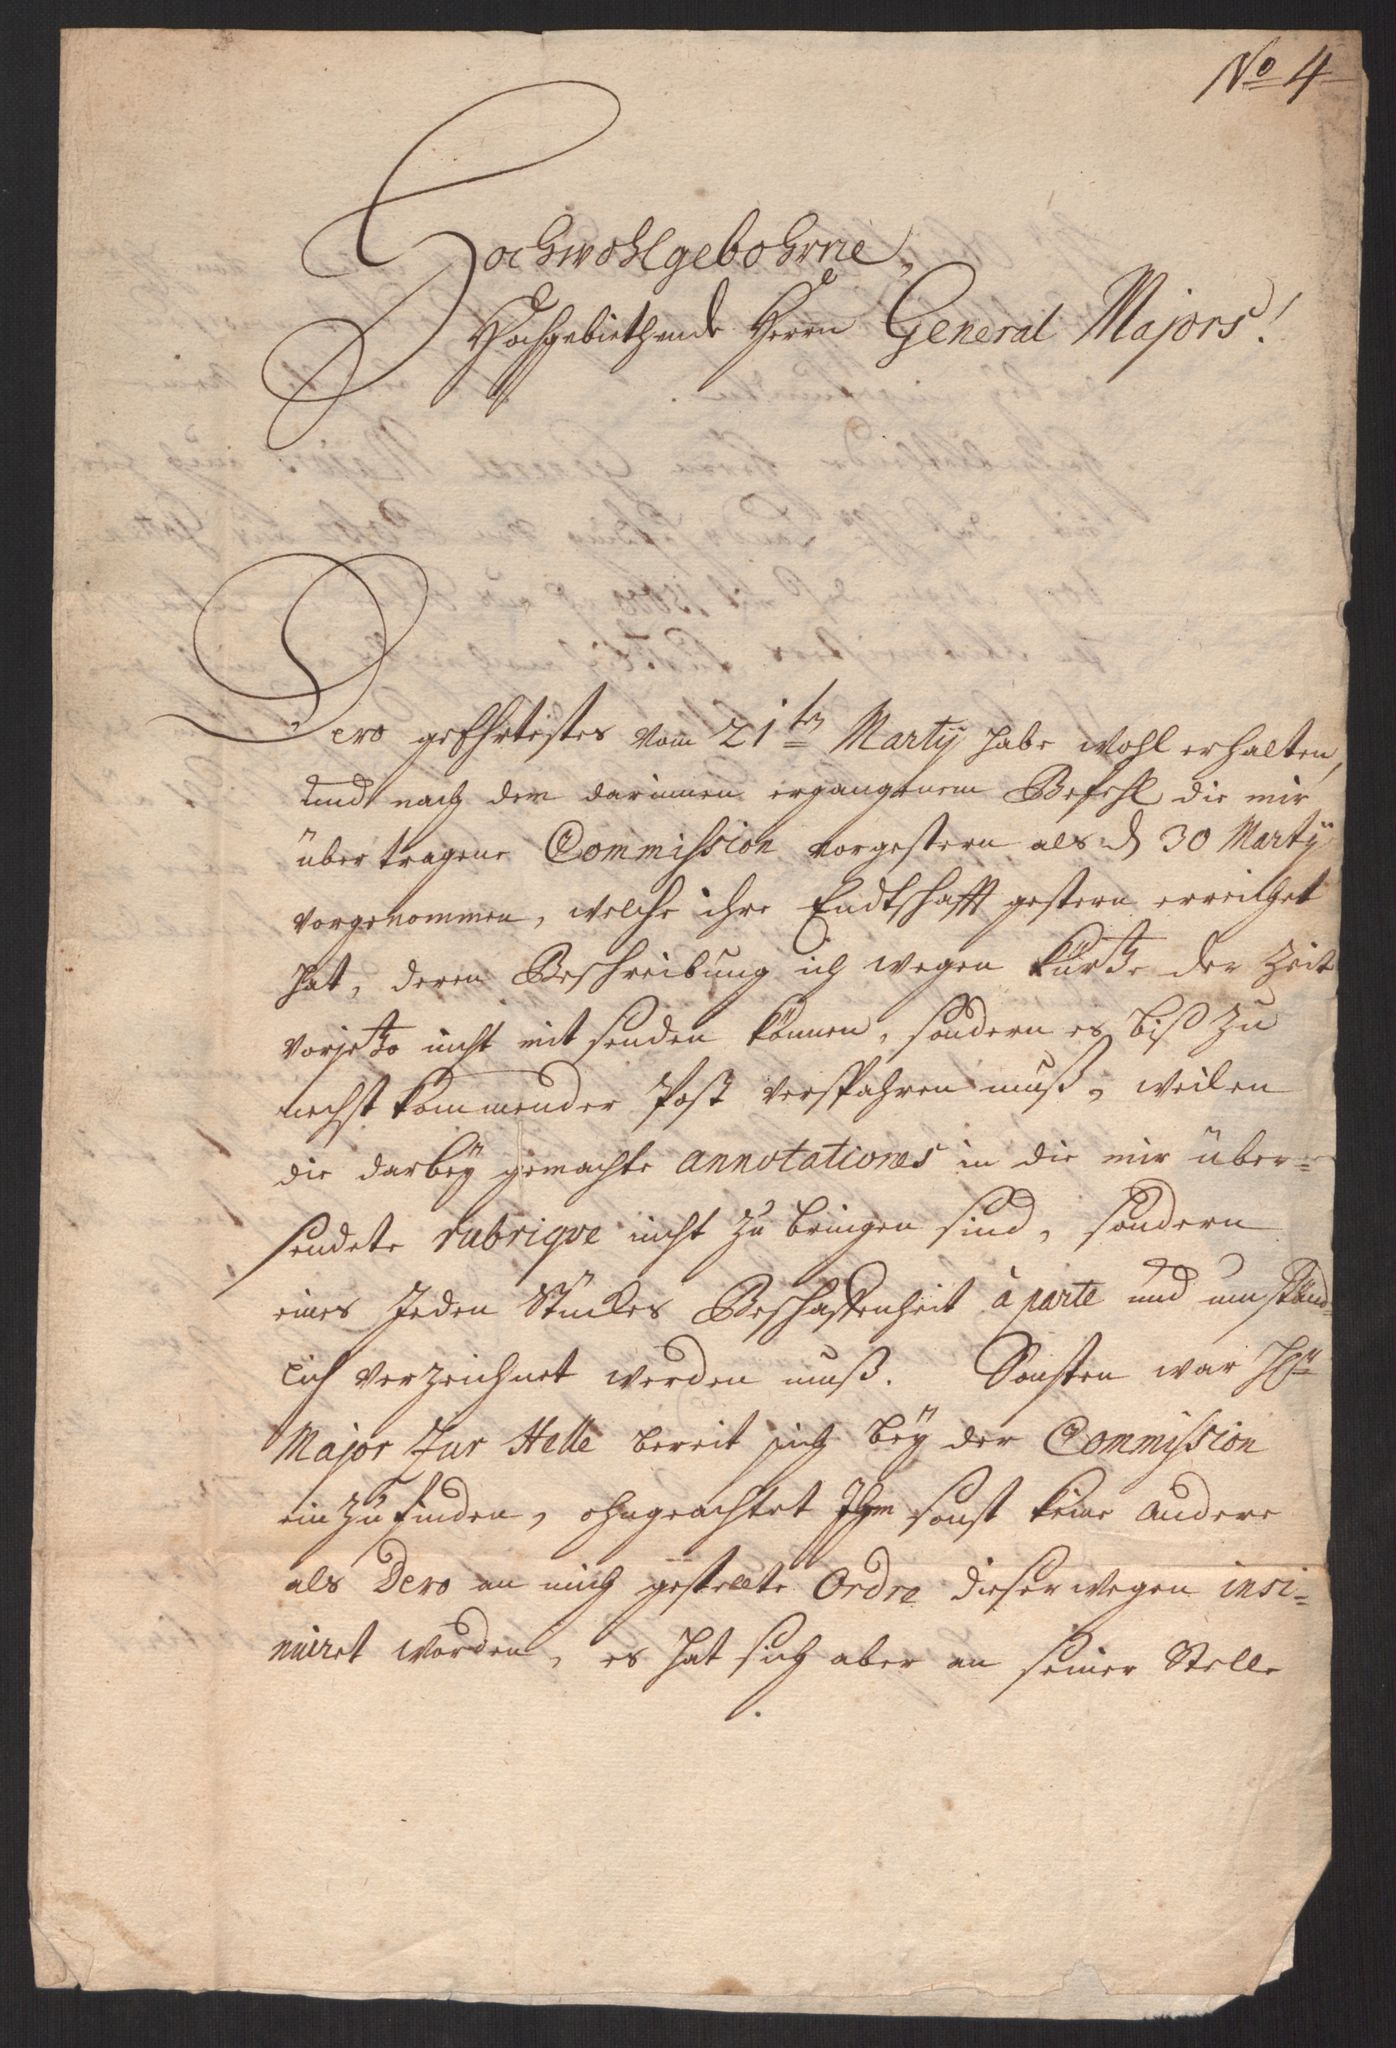 No 4
Hochwohlgebohrne,
Hochgebiethende Herren General Majors!
Dero geEhrtestes vom 21ten Martij habe wohl erhalten,
und nach dem darinnen ergangenem Befehl die mir
übertragene Commission vorgestern als d 30 Martij
vorgenommen, welche ihre Endtschafft gestern erreichet
hat, deren Beschreibung ich wegen kürtze der Zeit
vorjetzo nicht mit senden können, sondern es biß zu
nechst kommender Post verspahren muß, weilen
die darbey gemachte annotationes in die mir über=
sendete rubrique nicht zu bringen sind, sondern
eines Jeden Stückes Beschaffenheit à parte und umständ=
lich verzeichnet werden muß. Sonsten war Hr
Major Zur Helle bereit sich bey der Commission
ein zu finden, ohngeachtet Ihm sonst keine andere
als Dero an mich gestellte Ordre dieserwegen insi=
nuiret worden, es hat sich aber an seiner Stelle